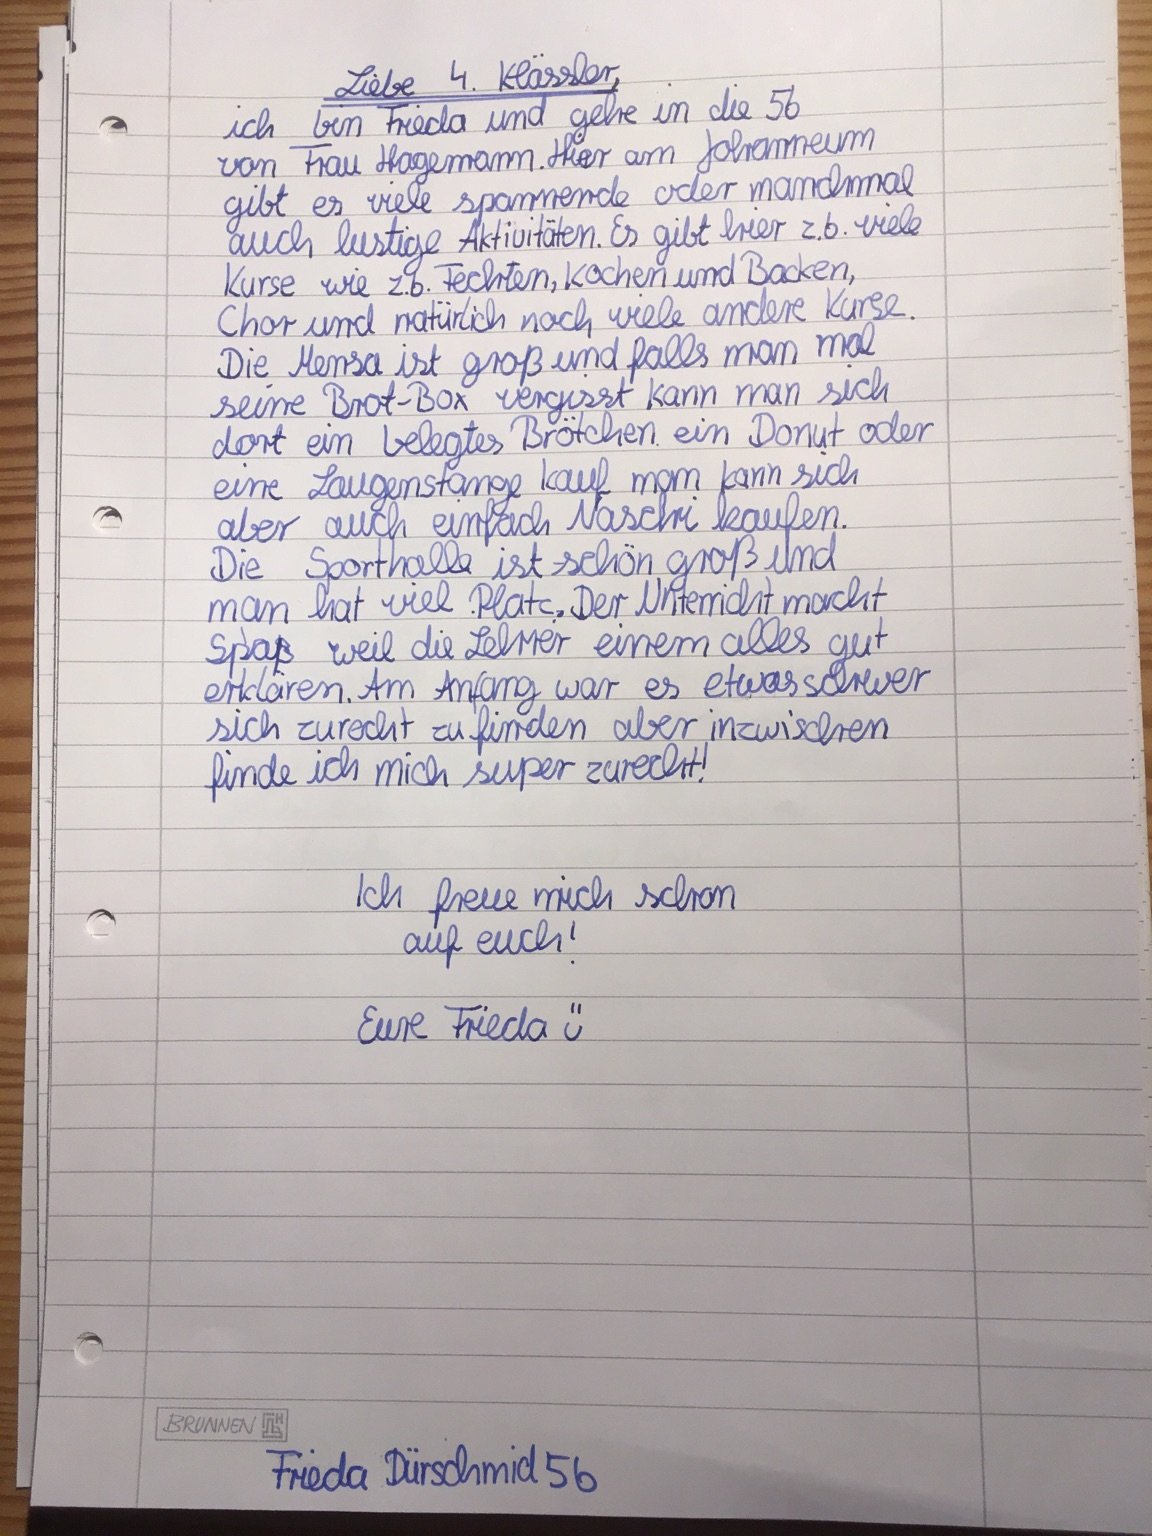 Liebe 4. Klässler,
ich bin Frieda und gehe in die 5b
von Frau Hagemann. Hier am Johanneum
gibt es viele spannende oder manchmal
auch lustige Aktivitäten. Es gibt hier z.b. viele
Kurse wie z.b. Fechten, Kochen und Backen,
Chor und natürlich noch viele andere Kurse.
Die Mensa ist groß und falls man mal
seine Brot-Box vergisst kann man sich
dort ein belegtes Brötchen ein Donut oder
eine Laugenstange kauf man kann sich
aber auch einfach Naschi kaufen.
Die Sporthalle ist schön groß und
man hat viel Platz. Der Unterricht macht
Spaß weil die Lehrer einem alles gut
erklären. Am Anfang war es etwas schwer
sich zurecht zu finden aber inzwischen
finde ich mich super zurecht!
Ich freue mich schon
auf euch!
Eure Frieda ü
BRUNNEN
Frieda Dürschmid 5b